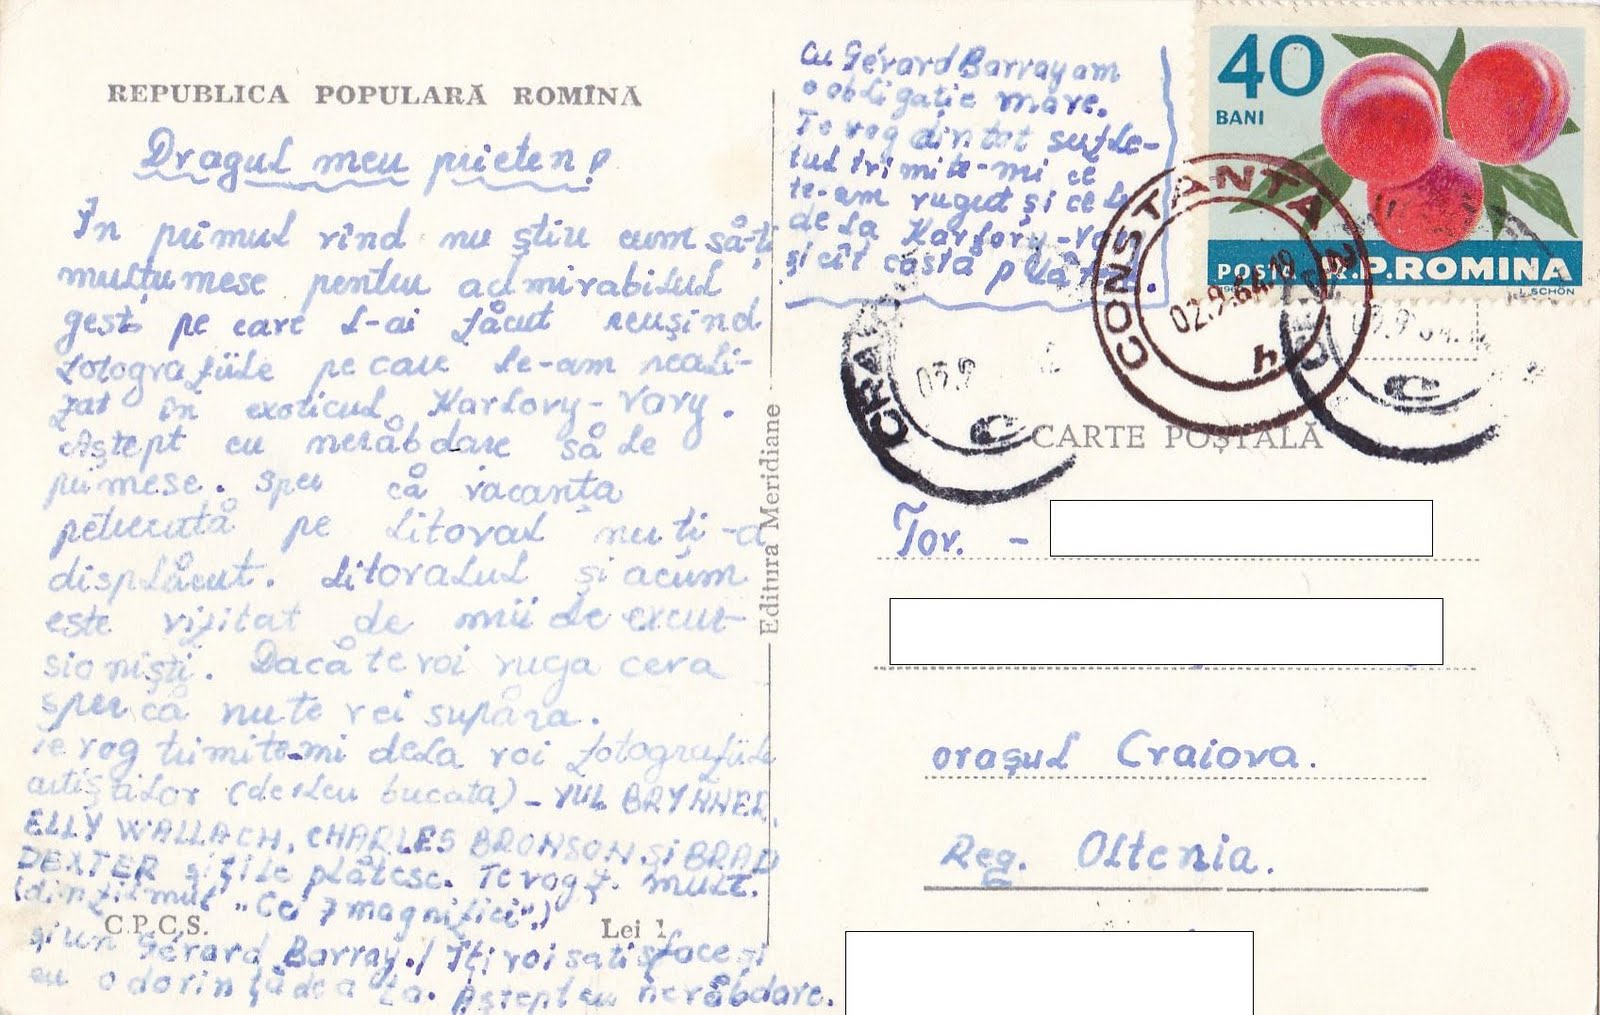 REPUBLICA POPULARĂ ROMÎNĂ
Dragul meu prieten!
În primul rînd nu știu cum să-ți
mulțumesc pentru admirabilul
gest pe care l-ai făcut reușind
fotografiile pe care le-am reali-
zat în exoticul Karlovy-Vary.
Aștept cu nerăbdare să le
primesc. Sper că vacanța
petrecută pe litoral nu ți-a
displăcut. Litoralul și acum
este vizitat de mii de excur-
sioniști. Dacă te voi ruga ceva
sper că nu te vei supăra.
Te rog trimite-mi dela voi fotografiile
artiștilor (de 1 leu bucata) - YUL BRYNNER,
ELLY WALLACH, CHARLES BRONSON ȘI BRAD
DEXTER și ți le plătesc. Te rog f. mult.
(din filmul "Cei 7 magnifici".)
și un Gérard Barray./ Îți voi satisface și
eu o dorință de a ta. Aștept cu nerăbdare.
C.P.C.S. Lei 1
Editura Meridiane
Cu Gérard Barray am
o obligație mare.
Te rog din tot sufle-
tul trimite-mi ce
te-am rugat și cel
de la Karlovy-Vary
și cît costă plătesc.
40
BANI
POSTA R.P.ROMINA
L.SCHÖN
CONSTANTA 2
02.9.64.18
4
CRAI
C
C
CARTE POȘTALĂ
Tov. -
orașul Craiova.
Reg. Oltenia.